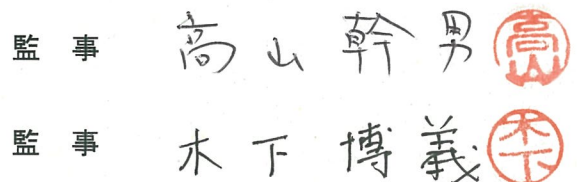 監事 高山幹男 高山
監事 木下博義 木下